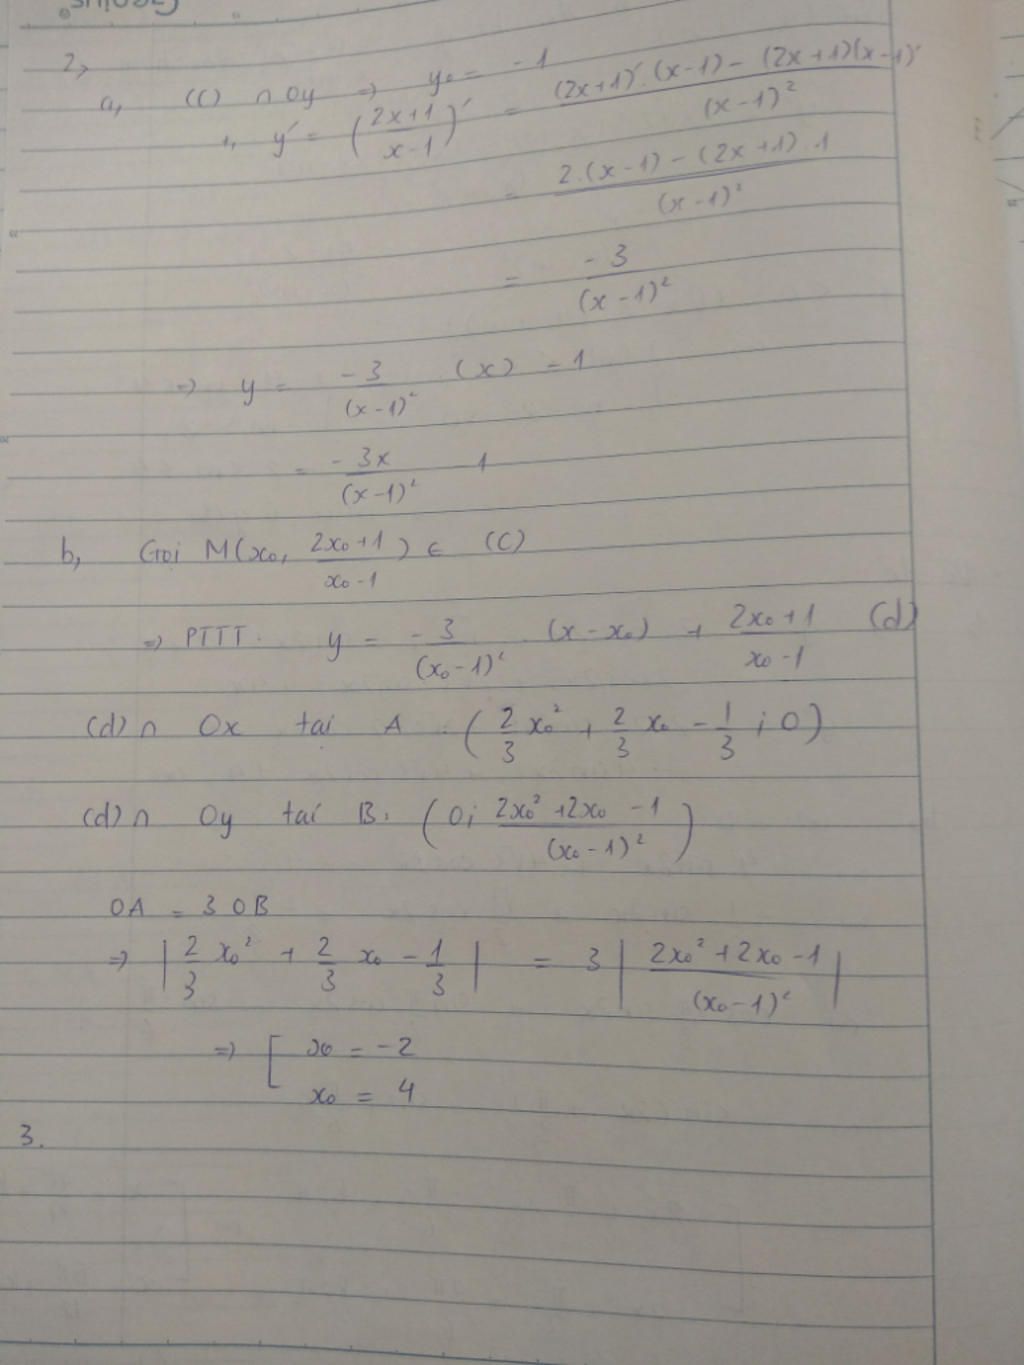 2,
a, (C) ∩ Oy ⇒ y₀ = -1
+, y' = (2x+1 / x-1)' = (2x+1)'.(x-1) - (2x+1)(x-1)' / (x-1)²
= 2.(x-1) - (2x+1).1 / (x-1)²
= -3 / (x-1)²
⇒ y = -3 / (x-1)² (x) - 1
= -3x / (x-1)² 1
b, Gọi M(x₀, 2x₀+1 / x₀-1) ∈ (C)
⇒ PTTT. y = -3 / (x₀-1)² (x-x₀) + 2x₀+1 / x₀-1 (d)
(d) ∩ Ox tại A : (2/3 x₀² + 2/3 x₀ - 1/3 ; 0)
(d) ∩ Oy tại B: (0; 2x₀²+2x₀-1 / (x₀-1)²)
OA = 3 OB
⇒ |2/3 x₀² + 2/3 x₀ - 1/3| = 3 |2x₀²+2x₀-1 / (x₀-1)²|
⇒ [ x₀ = -2
x₀ = 4
3.